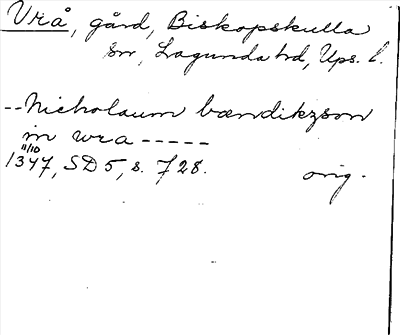 Vrå, gård, Biskopskulla
sn, Lagunda hd, Ups. l.
-- Nicholaum bændikzson
in wra -----
11/10
1347, SD 5, s. 728.
orig.